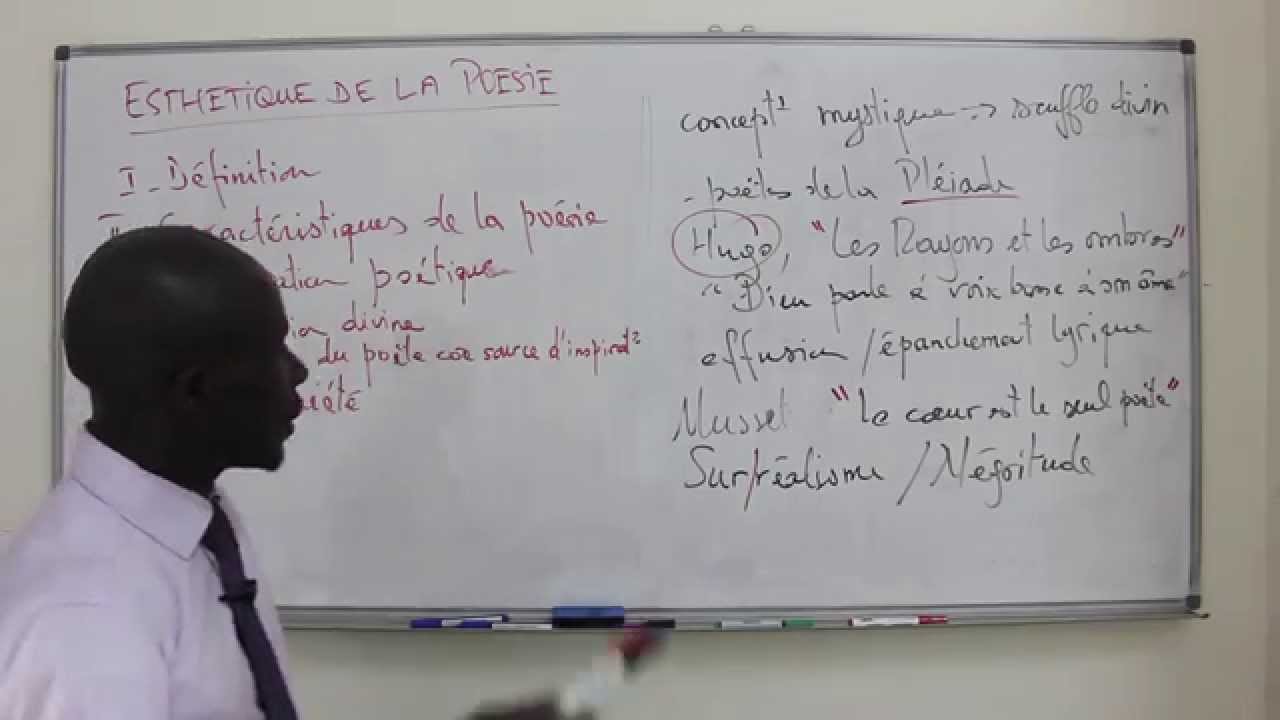 ESTHETIQUE DE LA POESIE
I - Définition
II - Caractéristiques de la poésie
poétique
divine
du poète cox source d'inspirat°
concept° mystique => souffle divin
- poètes de la Pléiade
Hugo, "Les Rayons et les ombres"
"Dieu parle à voix basse à son âme"
effusion / épanchement lyrique
Musset "Le cœur est le seul poète"
Surréalisme / Négritude